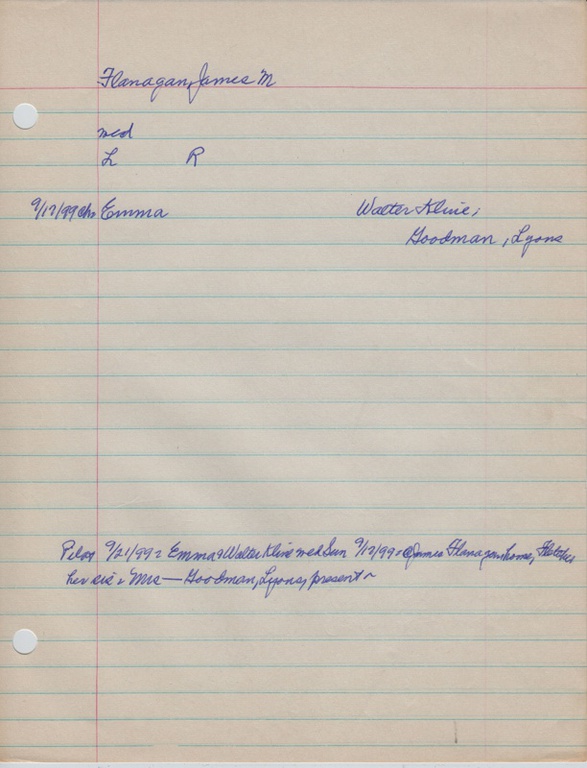 Flanagan, James M
med
L R
9/17/99 Emma Walter Kline,
Goodman, Lyons
9/21/99: Emma & Walter Kline med Sun 9/17/99 @ James Flanagan home,
her sis: Mrs — Goodman, Lyons, present ~